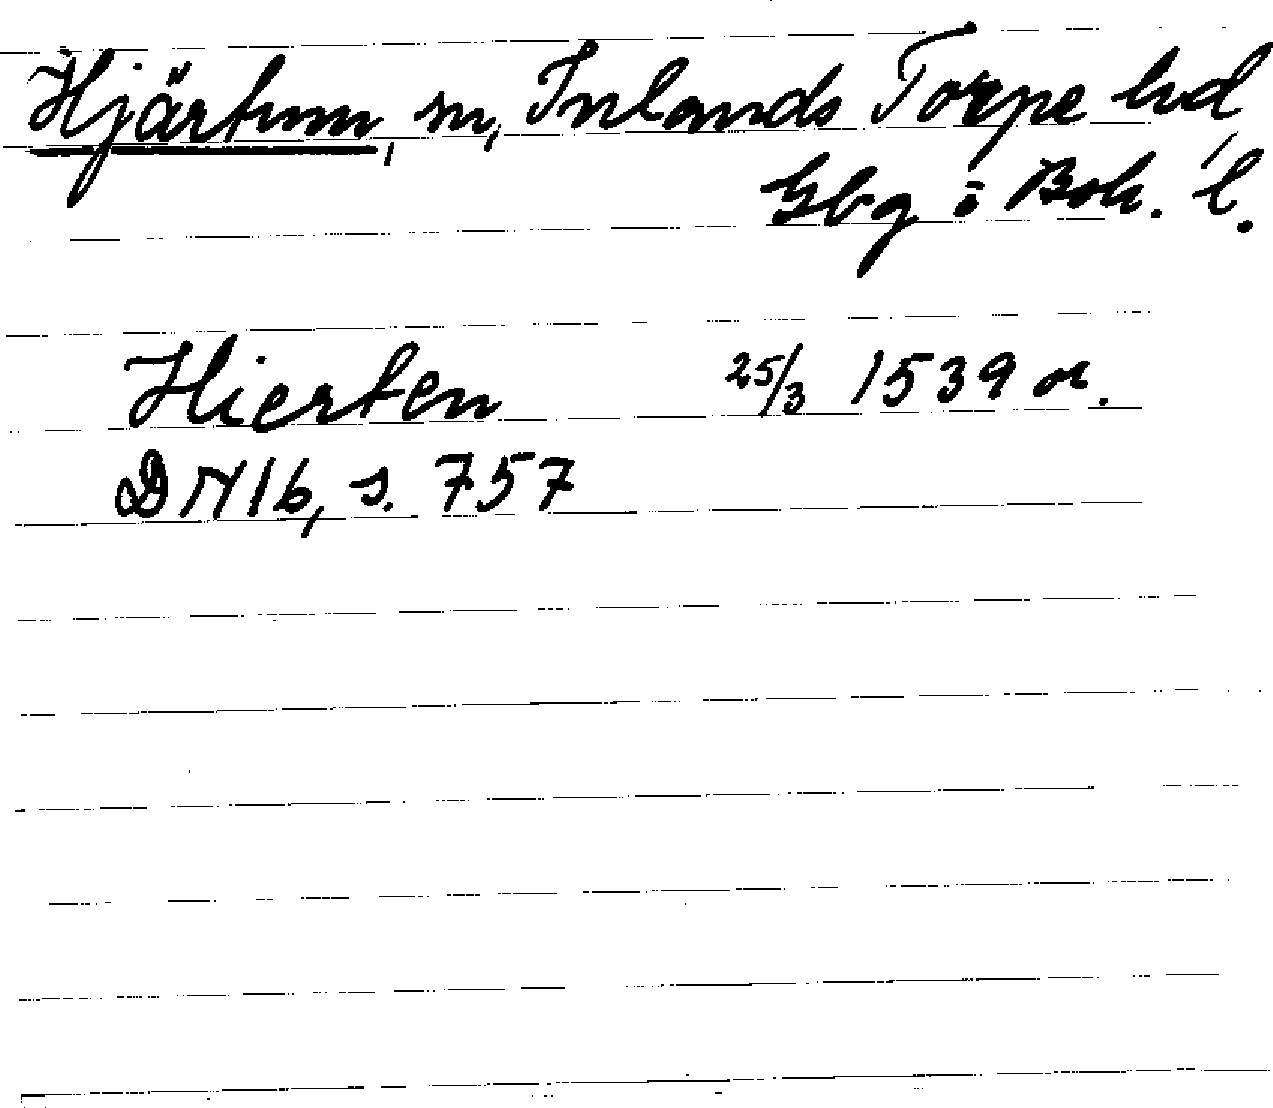 Hjärtum, sn, Inlands Torpe hd,
Gbg o Boh. l.
Hierten 25/3 1539 or.
DN 16, s. 757